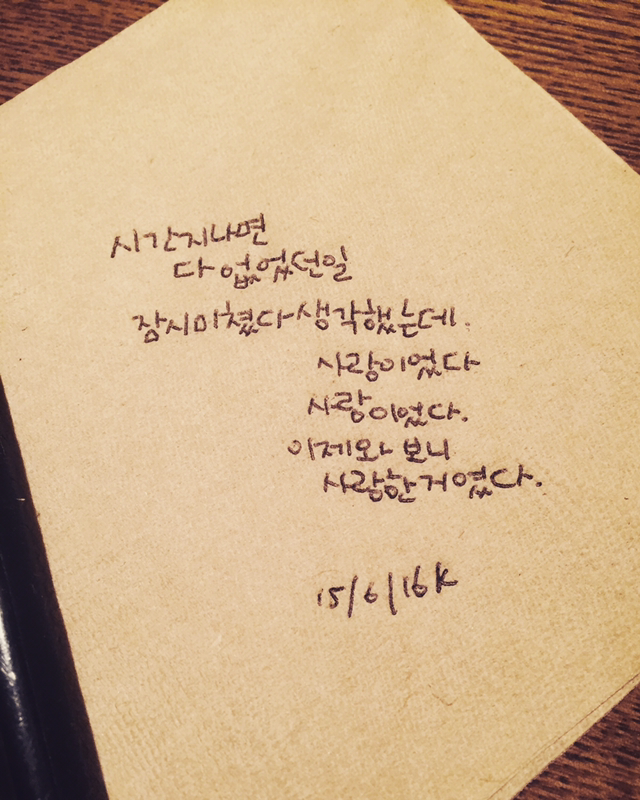 시간지나면
다 없었던일
잠시미쳤다생각했는데.
사랑이었다
사랑이었다.
이제와 보니
사랑한거였다.
15/6/16 K